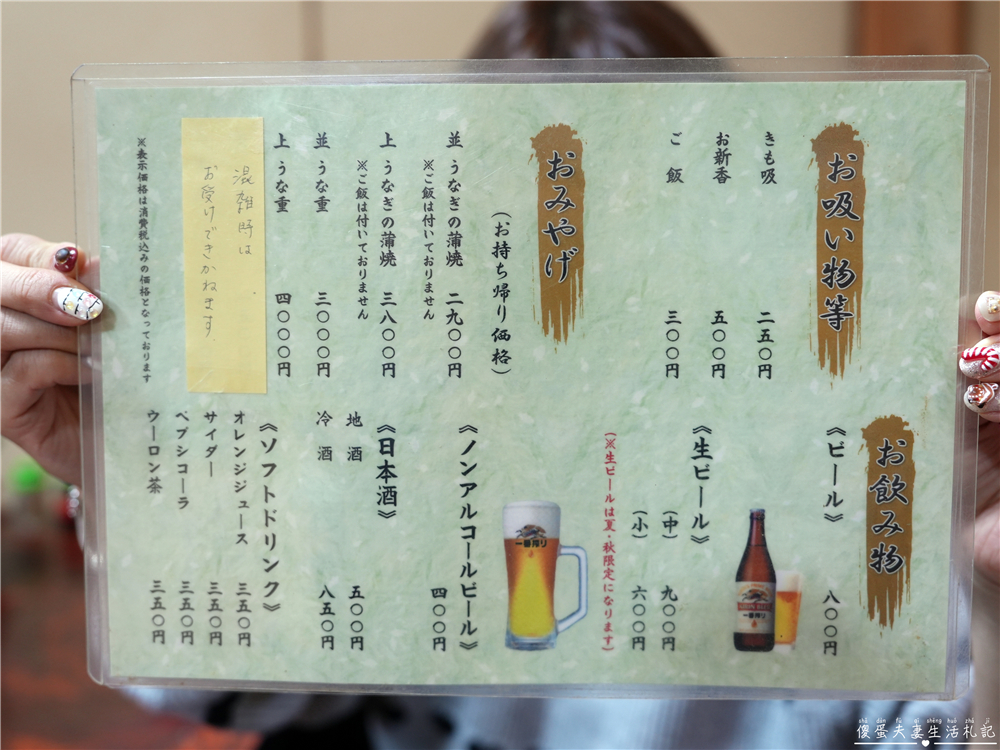 お吸い物等
きも吸 二五〇円
お新香 五〇〇円
ご飯 三〇〇円
おみやげ
（お持ち帰り価格）
並 うなぎの蒲焼 二九〇〇円
※ご飯は付いておりません
上 うなぎの蒲焼 三八〇〇円
※ご飯は付いておりません
並 うな重 三〇〇〇円
上 うな重 四〇〇〇円
混雑時は
お受けできかねます。
※表示価格は消費税込みの価格となっております
お飲み物
《ビール》 八〇〇円
KIRIN BEER
一番搾り
《生ビール》
（中） 九〇〇円
（小） 六〇〇円
（※生ビールは夏・秋限定になります）
一番搾り
《ノンアルコールビール》
四〇〇円
《日本酒》
地酒 五〇〇円
冷酒 八五〇円
《ソフトドリンク》
オレンジジュース 三五〇円
サイダー 三五〇円
ペプシコーラ 三五〇円
ウーロン茶 三五〇円
shǎ dàn fū qī shēng huó zhá jì
傻蛋夫妻生活札記